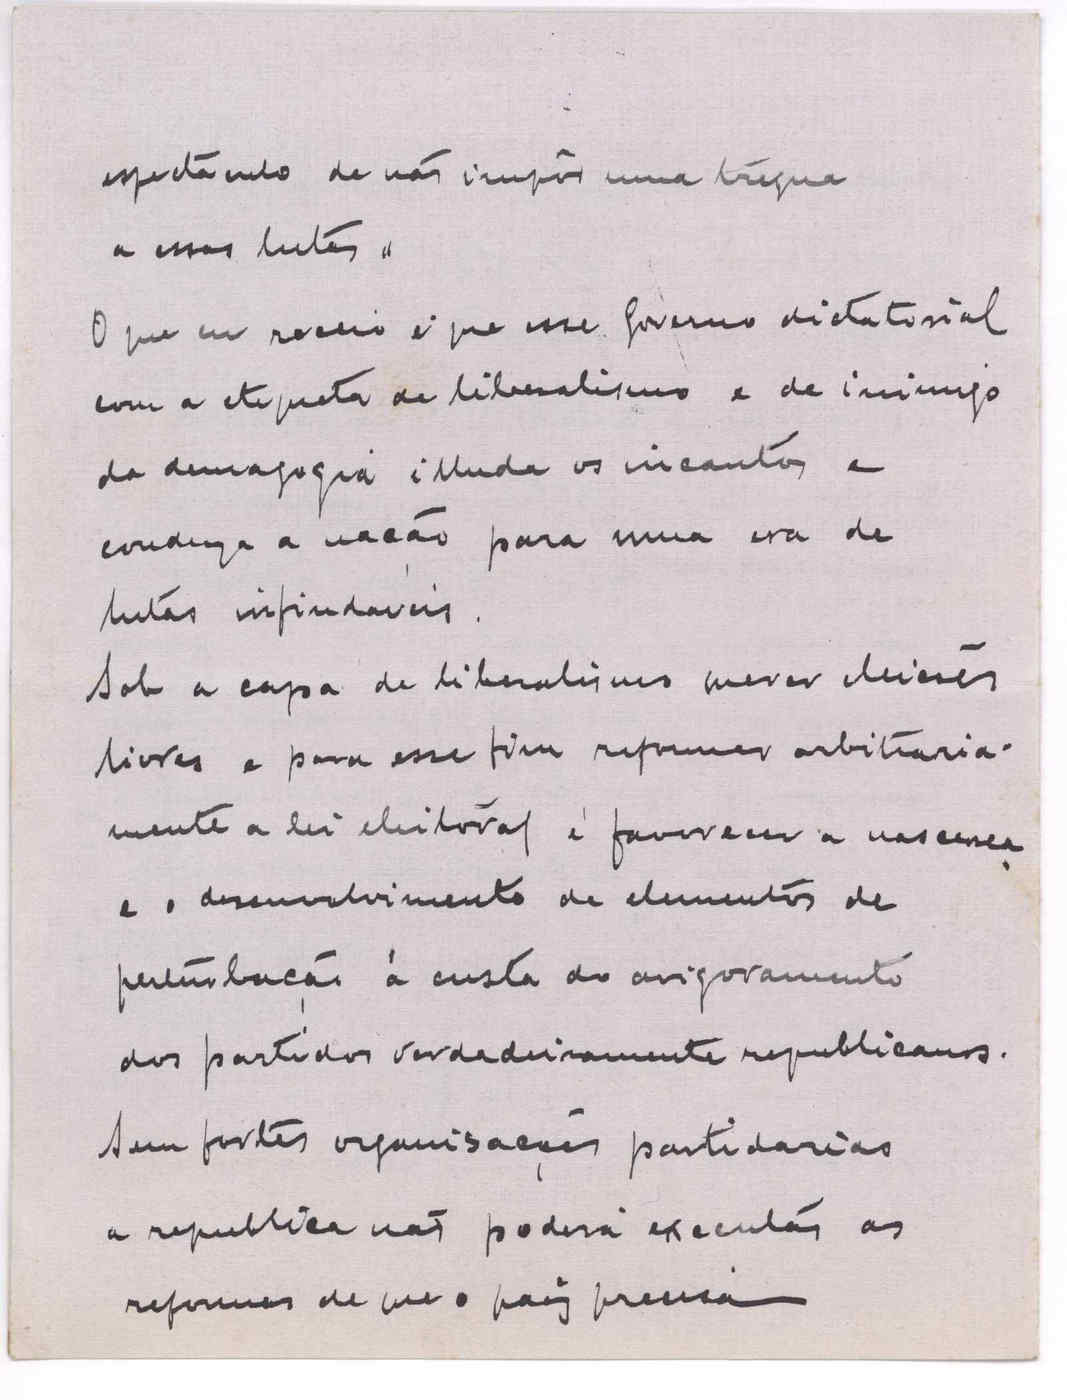 espectáculo de nós impôr uma trégua
a essas lutas"
O que eu receio é que esse governo dictatorial
com a etiqueta de liberalismo e de inimigo
da demagogia illuda os incautos e
conduza a nação para uma era de
lutas infindaveis.
Sob a capa de liberalismo querer eleições
livres e para esse fim reformar arbitraria-
mente a lei eleitoral é favorecer a nascença
e o desenvolvimento de elementos de
perturbação á custa do avigoramento
dos partidos verdadeiramente republicanos.
Sem fortes organisações partidarias
a republica não poderá executar as
reformas de que o paiz precisa